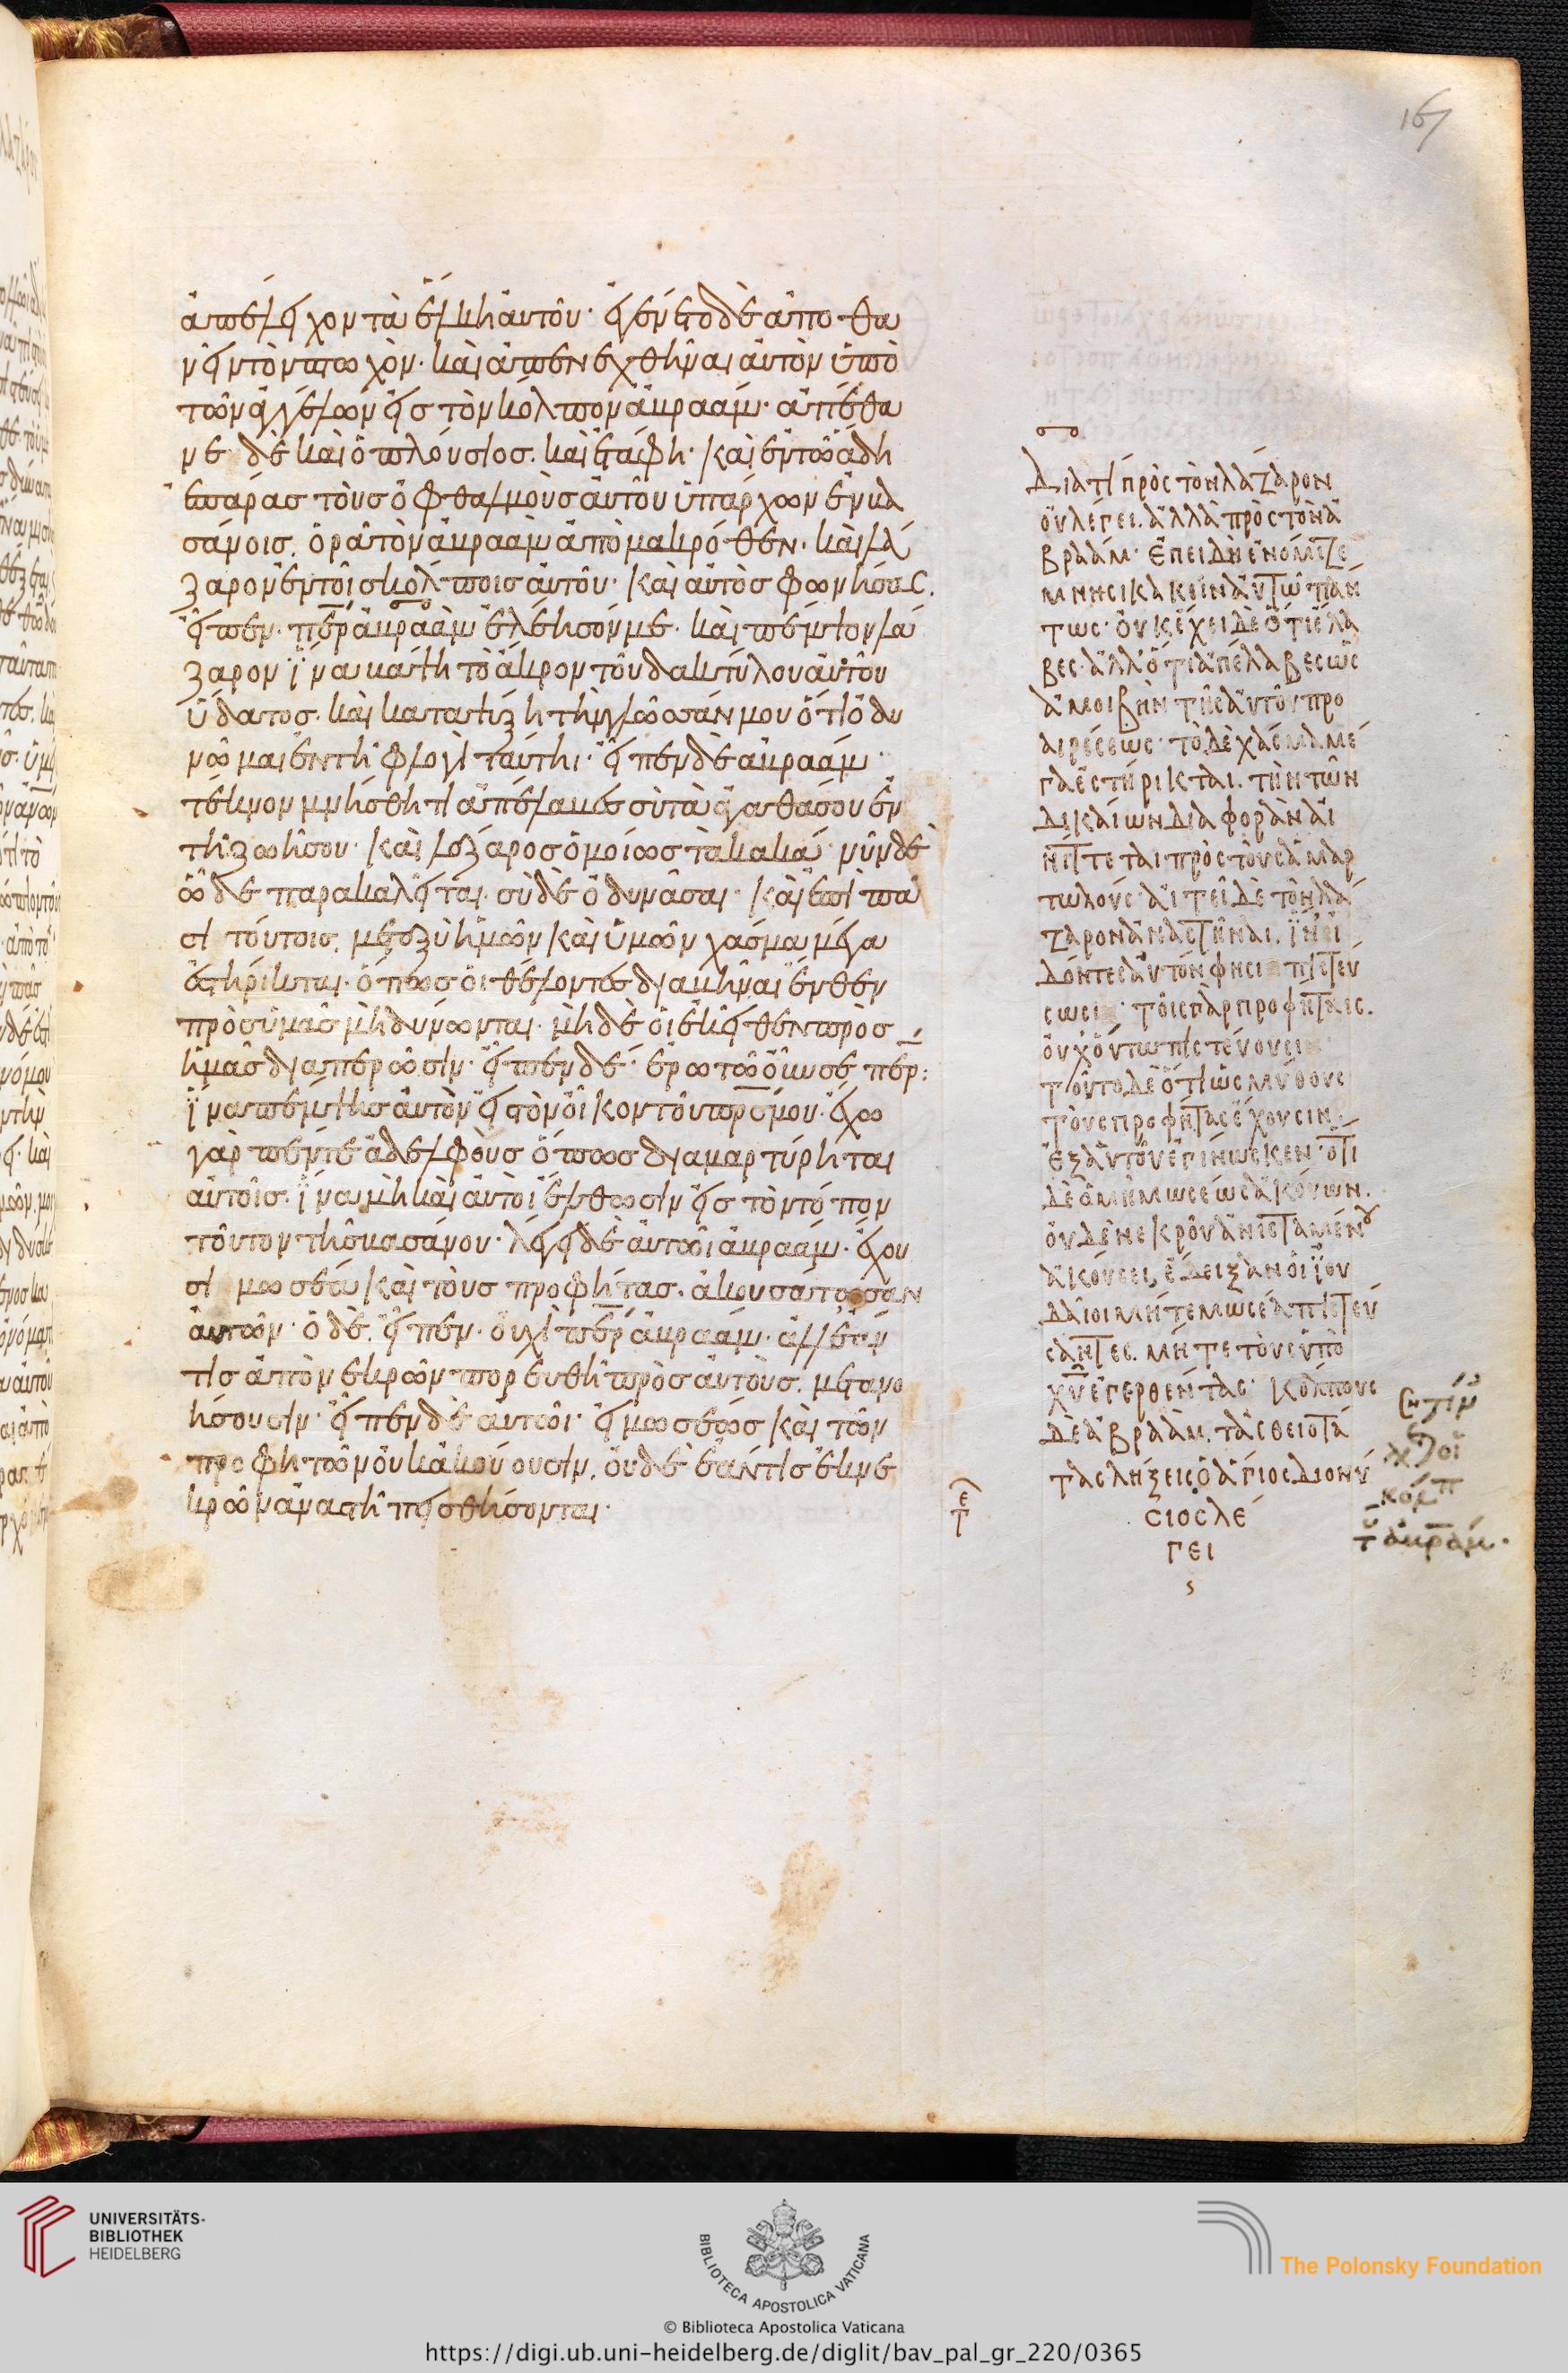 ἀπέλειχον τὰ ἕλκη αὐτοῦ· ἐγένετο δὲ ἀποθα
νεῖν τὸν πτωχὸν· καὶ ἀπενεχθῆναι αὐτὸν ὑπὸ
τῶν ἀγγέλων εἰς τὸν κόλπον ἀβραάμ· ἀπέθα
νε δὲ καὶ ὁ πλούσιος. καὶ ἐτάφη· καὶ ἐν τῶ ἅδη
ἐπάρας τοὺς ὀφθαλμοὺς αὐτοῦ ὑπάρχων ἐν βα
σάνοις. ὁρᾶ τὸν ἀβραὰμ ἀπὸ μακρόθεν. καὶ λά
ζαρον ἐν τοῖς κόλποις αὐτοῦ· καὶ αὐτὸς φωνήσας.
εἶπεν· περ ἀβραὰμ ἐλέησόν με· καὶ πέμψον λά
ζαρον ἵνα βάψη τὸ ἄκρον τοῦ δακτύλου αὐτοῦ
ὕδατος· καὶ καταψύξη τὴν γλῶσσάν μου ὅτι ὀδυ
νῶμαι ἐν τῆ φλογὶ ταύτηι· εἶπεν δὲ ἀβραάμ·
τέκνον μνήσθητι ἀπέλαβες σὺ τὰ ἀγαθά σου ἐν
τῆ ζωῆ σου· καὶ λάζαρος ὁμοίως τὰ κακά· νῦν δὲ
ὧδε παρακαλεῖται· σὺ δὲ ὀδυνᾶσαι· καὶ ἐπὶ πᾶ
σι τούτοις. μεταξὺ ἡμῶν καὶ ὑμῶν χάσμα μέγα
ἐστήρικται· ὅπως οἱ θέλοντες διαβῆναι ἔνθεν
πρὸς ὑμᾶς μὴ δύνωνται· μὴ δὲ οἱ ἐκεῖθεν πρὸς
ἡμᾶς διαπερῶσιν· εἶπεν δέ· ἐρωτῶ οὖν σε περ:
ἵνα πέμψης αὐτὸν εἰς τὸν οἶκον τοῦ πρσ μου· ἔχω
γὰρ πέντε ἀδελφοὺς ὅπως διαμαρτύρηται
αὐτοῖς· ἵνα μὴ καὶ αὐτοὶ ἔλθωσιν εἰς τὸν τόπον
τοῦτον τῆς βασάνου· λέγει δὲ αὐτῶι ἀβραάμ· ἔχου
σι μωσέα καὶ τοὺς προφήτας. ἀκουσάτωσαν
αὐτῶν· ὁ δὲ. εἶπεν· οὐχὶ περ ἀβραάμ· ἀλλ ἐάν
τις ἀπὸ νεκρῶν πορευθῆ πρὸς αὐτοὺς. μετανο
ήσουσιν· εἶπεν δὲ αὐτῶι· εἰ μωσέως καὶ τῶν
προφητῶν οὐκ ἀκούουσιν. οὐδὲ ἐάν τις ἐκ νε
κρῶν ἀναστῆ πεισθήσονται·
Διατί πρὸς τὸν λάζαρον
οὐ λέγει. ἀλλὰ πρὸς τὸν ἀ
βραάμ· ἐπειδὴ ἐνόμιζε
μνησικακεῖν αὐτῶ πάν
τως· οὐκ ἔχει δὲ ὅτι ἔλα
βες· ἀλλ' ὅτι ἀπέλαβες ὡς
ἀμοιβὴν τῆς αὐτοῦ προ
αιρέσεως· τὸ δὲ χάσμα μέ
γα ἐστήρικται. τὴν τῶν
δικαίων διαφορὰν αἰ
νίττεται πρὸς τοὺς ἁμαρ
τωλούς· αἰτεῖ δὲ τὸν λά
ζαρον ἀναστῆναι. ἵν' ἰ
δόντες αὐτόν φησι πιστεύ
σωσι· τοῖς γὰρ προφήταις.
οὐχ οὕτω πιστεύουσι
τοῦτο δὲ ὅτι ὡς μύθους
τοὺς προφήτας ἔχουσιν·
ἐξ αὐτοῦ ἐγίνωσκεν· ὅτι
δὲ ὁ μὴ μωσέως ἀκούων.
οὐδὲ νεκροῦ ἀνισταμένου
ἀκούσει, ἔδειξαν οἱ ἰου
δαῖοι μήτε μωσέα πιστεύ
σαντες. μήτε τοὺς ὑπὸ
χυ ἐγερθέντας· κόλπους
δὲ ἀβραάμ. τὰς θειοτά
τας λήξεις ὁ ἅγιος διονύ
σιος λέ
γει
τε
κόλπ
τ ἀβραάμ·
167
UNIVERSITÄTS-
BIBLIOTHEK
HEIDELBERG
BIBLIOTECA APOSTOLICA VATICANA
The Polonsky Foundation
© Biblioteca Apostolica Vaticana
https://digi.ub.uni-heidelberg.de/diglit/bav_pal_gr_220/0365